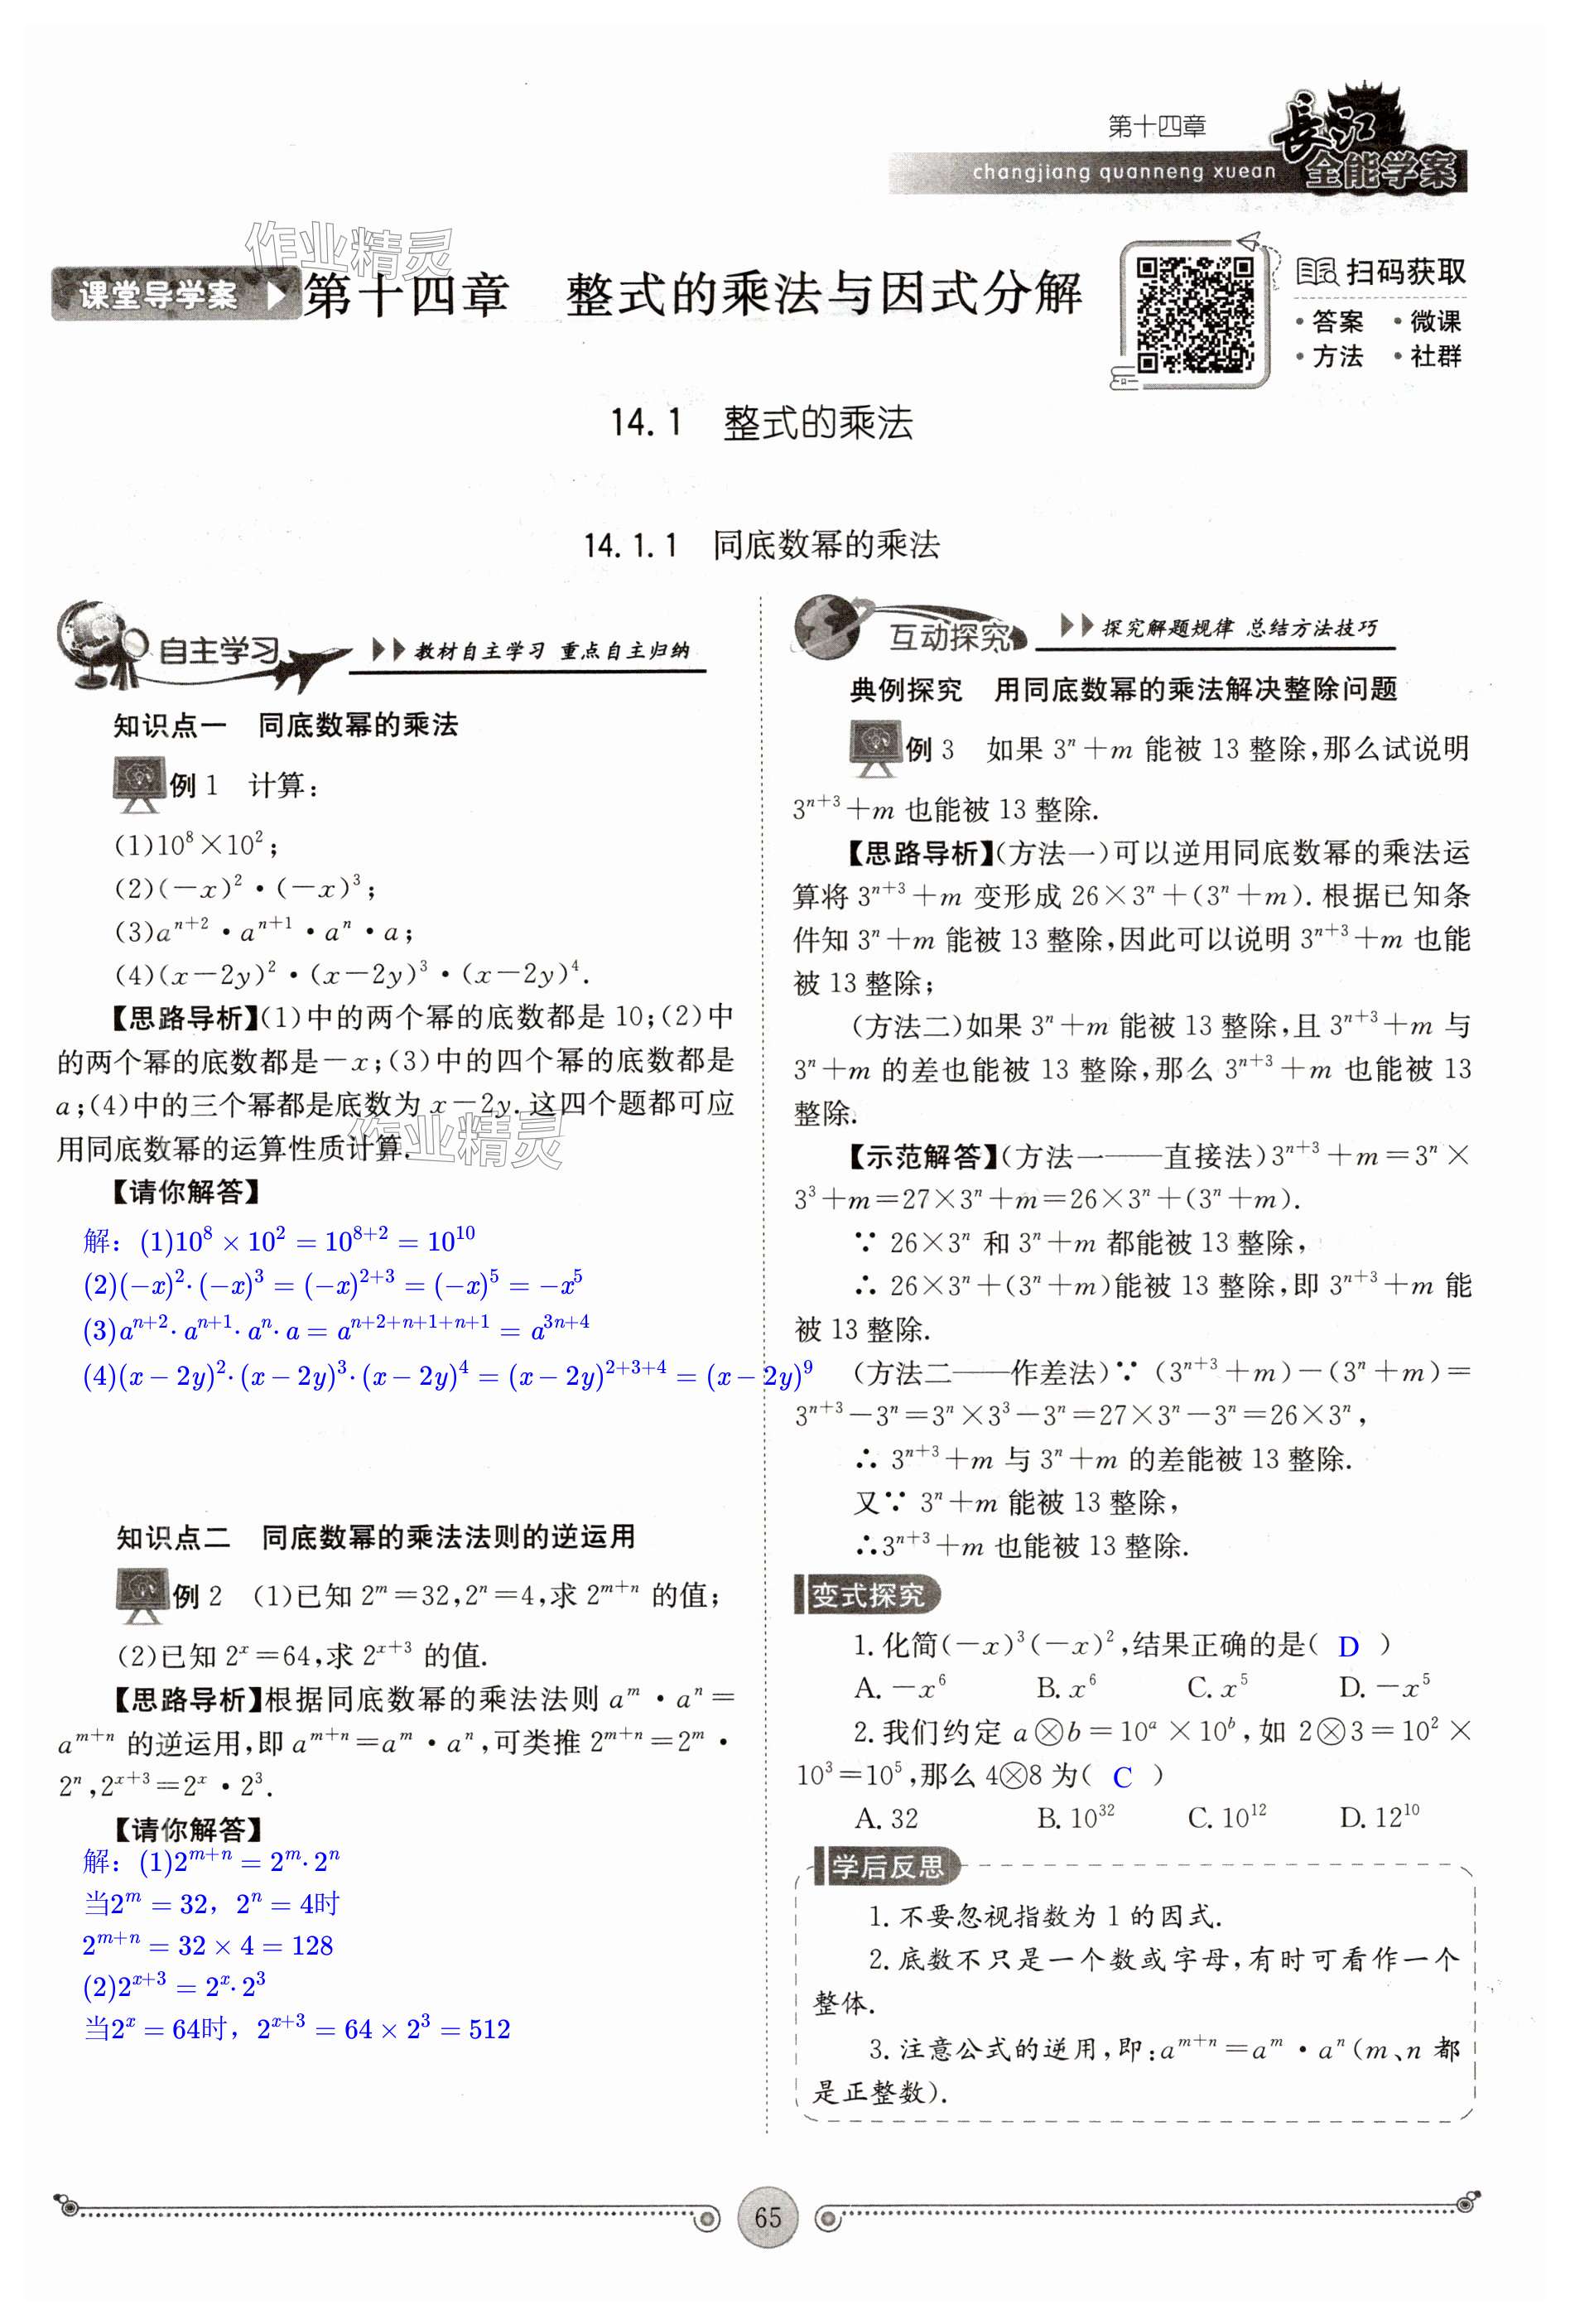 第十四章
长江
changjiang quanneng xuean 全能学案
作业精灵
课堂导学案 第十四章 整式的乘法与因式分解
扫码获取
·答案 ·微课
·方法 ·社群
14.1 整式的乘法
14.1.1 同底数幂的乘法
自主学习 教材自主学习 重点自主归纳
知识点一 同底数幂的乘法
例1 计算:
(1)10⁸×10²;
(2)(－x)²·(－x)³;
(3)aⁿ⁺²·aⁿ⁺¹·aⁿ·a;
(4)(x－2y)²·(x－2y)³·(x－2y)⁴.
【思路导析】(1)中的两个幂的底数都是10;(2)中
的两个幂的底数都是－x;(3)中的四个幂的底数都是
a;(4)中的三个幂都是底数为x－2y.这四个题都可应
用同底数幂的运算性质计算.
作业精灵
【请你解答】
解：(1)10⁸×10²=10⁸⁺²=10¹⁰
(2)(−x)²·(−x)³=(−x)²⁺³=(−x)⁵=−x⁵
(3)aⁿ⁺²·aⁿ⁺¹·aⁿ·a=aⁿ⁺²⁺ⁿ⁺¹⁺ⁿ⁺¹=a³ⁿ⁺⁴
(4)(x−2y)²·(x−2y)³·(x−2y)⁴=(x−2y)²⁺³⁺⁴=(x−2y)⁹
知识点二 同底数幂的乘法法则的逆运用
例2 (1)已知2ᵐ=32,2ⁿ=4,求2ᵐ⁺ⁿ的值;
(2)已知2ˣ=64,求2ˣ⁺³的值.
【思路导析】根据同底数幂的乘法法则aᵐ·aⁿ=
aᵐ⁺ⁿ的逆运用,即aᵐ⁺ⁿ=aᵐ·aⁿ,可类推2ᵐ⁺ⁿ=2ᵐ·
2ⁿ,2ˣ⁺³=2ˣ·2³.
【请你解答】
解：(1)2ᵐ⁺ⁿ=2ᵐ·2ⁿ
当2ᵐ=32，2ⁿ=4时
2ᵐ⁺ⁿ=32×4=128
(2)2ˣ⁺³=2ˣ·2³
当2ˣ=64时，2ˣ⁺³=64×2³=512
互动探究 探究解题规律 总结方法技巧
典例探究 用同底数幂的乘法解决整除问题
例3 如果3ⁿ+m能被13整除,那么试说明
3ⁿ⁺³+m也能被13整除.
【思路导析】(方法一)可以逆用同底数幂的乘法运
算将3ⁿ⁺³+m变形成26×3ⁿ+(3ⁿ+m).根据已知条
件知3ⁿ+m能被13整除,因此可以说明3ⁿ⁺³+m也能
被13整除;
(方法二)如果3ⁿ+m能被13整除,且3ⁿ⁺³+m与
3ⁿ+m的差也能被13整除,那么3ⁿ⁺³+m也能被13
整除.
【示范解答】(方法一——直接法)3ⁿ⁺³+m=3ⁿ×
3³+m=27×3ⁿ+m=26×3ⁿ+(3ⁿ+m).
∵26×3ⁿ和3ⁿ+m都能被13整除,
∴26×3ⁿ+(3ⁿ+m)能被13整除,即3ⁿ⁺³+m能
被13整除.
(方法二——作差法)∵(3ⁿ⁺³+m)－(3ⁿ+m)=
3ⁿ⁺³－3ⁿ=3ⁿ×3³－3ⁿ=27×3ⁿ－3ⁿ=26×3ⁿ,
∴3ⁿ⁺³+m与3ⁿ+m的差能被13整除.
又∵3ⁿ+m能被13整除,
∴3ⁿ⁺³+m也能被13整除.
变式探究
1.化简(－x)³(－x)²,结果正确的是( D )
A.－x⁶ B.x⁶ C.x⁵ D.－x⁵
2.我们约定a⊗b=10ᵃ×10ᵇ,如2⊗3=10²×
10³=10⁵,那么4⊗8为( C )
A.32 B.10³² C.10¹² D.12¹⁰
学后反思
1.不要忽视指数为1的因式.
2.底数不只是一个数或字母,有时可看作一个
整体.
3.注意公式的逆用,即:aᵐ⁺ⁿ=aᵐ·aⁿ(m、n都
是正整数).
65